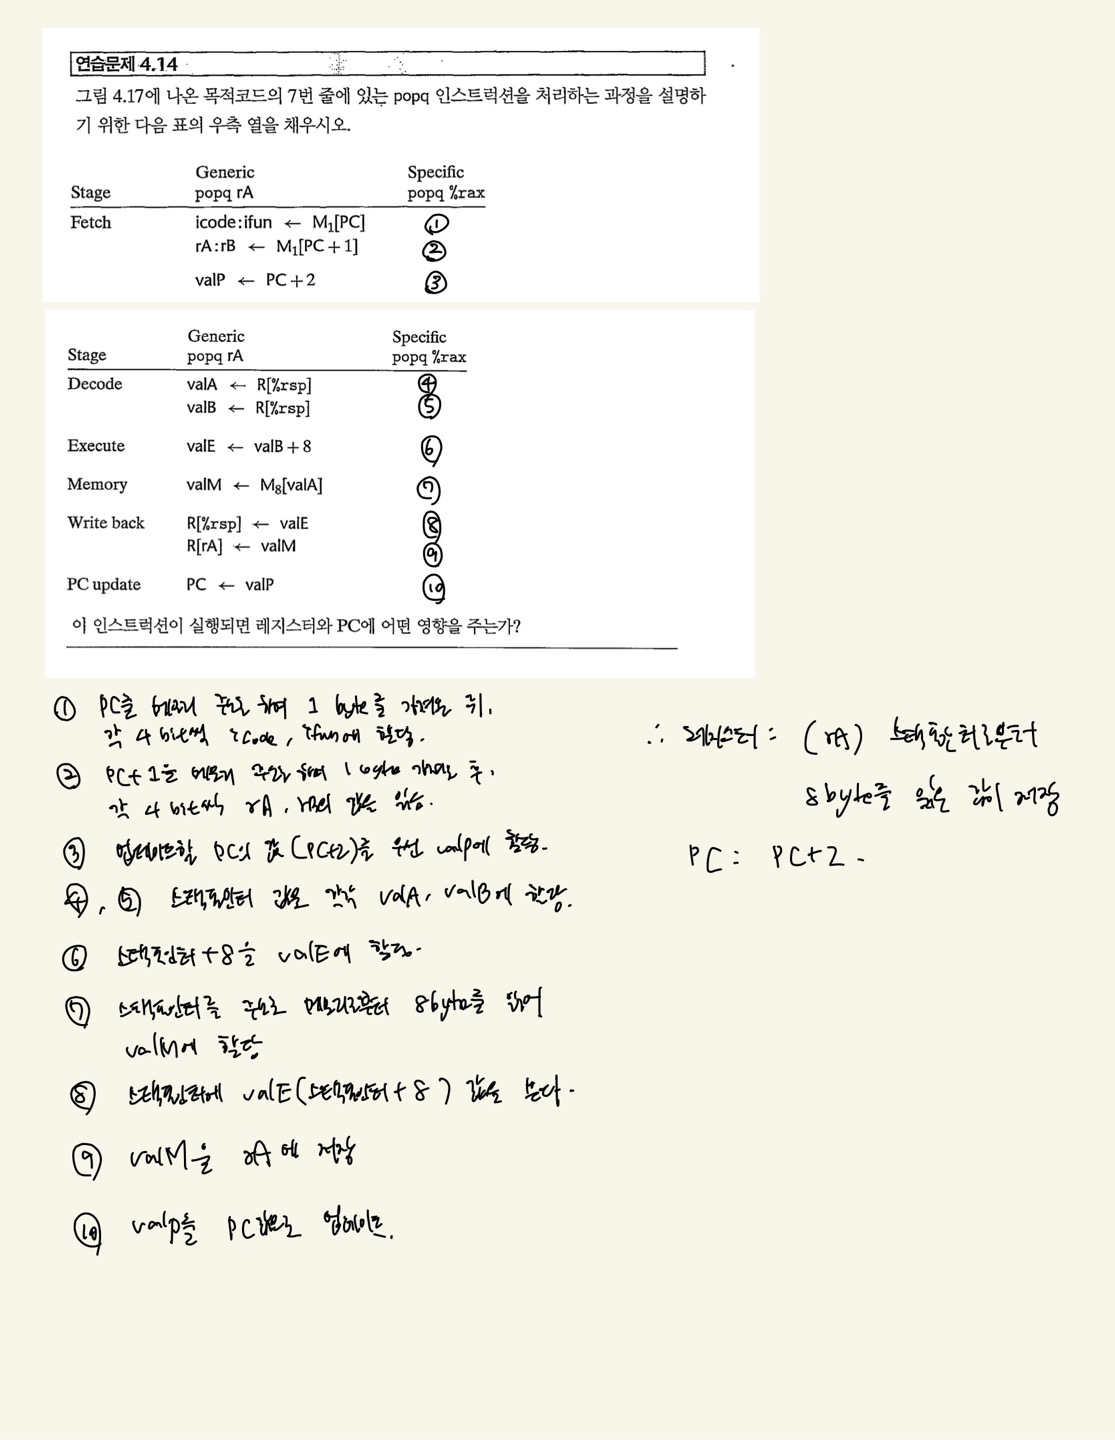 연습문제 4.14
그림 4.17에 나온 목적코드의 7번 줄에 있는 popq 인스트럭션을 처리하는 과정을 설명하
기 위한 다음 표의 우측 열을 채우시오.
Generic Specific
Stage popq rA popq %rax
Fetch icode:ifun ← M₁[PC] ①
rA:rB ← M₁[PC+1] ②
valP ← PC+2 ③
Generic Specific
Stage popq rA popq %rax
Decode valA ← R[%rsp] ④
valB ← R[%rsp] ⑤
Execute valE ← valB+8 ⑥
Memory valM ← M₈[valA] ⑦
Write back R[%rsp] ← valE ⑧
R[rA] ← valM ⑨
PC update PC ← valP ⑩
이 인스트럭션이 실행되면 레지스터와 PC에 어떤 영향을 주는가?
① PC를 메모리 주소로 하여 1 byte를 가져온 뒤,
각 4 bit씩 icode, ifun에 할당.
② PC+1을 메모리 주소로 하여 1 byte 가져온 후,
각 4 bit씩 rA, rB의 값을 읽음.
③ 업데이트할 PC의 값(PC+2)를 우선 valP에 할당.
④, ⑤ 스택포인터 값을 각각 valA, valB에 할당.
⑥ 스택포인터+8을 valE에 할당.
⑦ 스택포인터를 주소로 메모리로부터 8byte를 읽어
valM에 할당
⑧ 스택포인터에 valE(스택포인터+8) 값을 쓴다.
⑨ valM을 rA에 저장
⑩ valP를 PC값으로 업데이트.
∴ 레지스터 = (rA) 스택포인터로부터
8byte를 읽은 값이 저장
PC = PC+2.